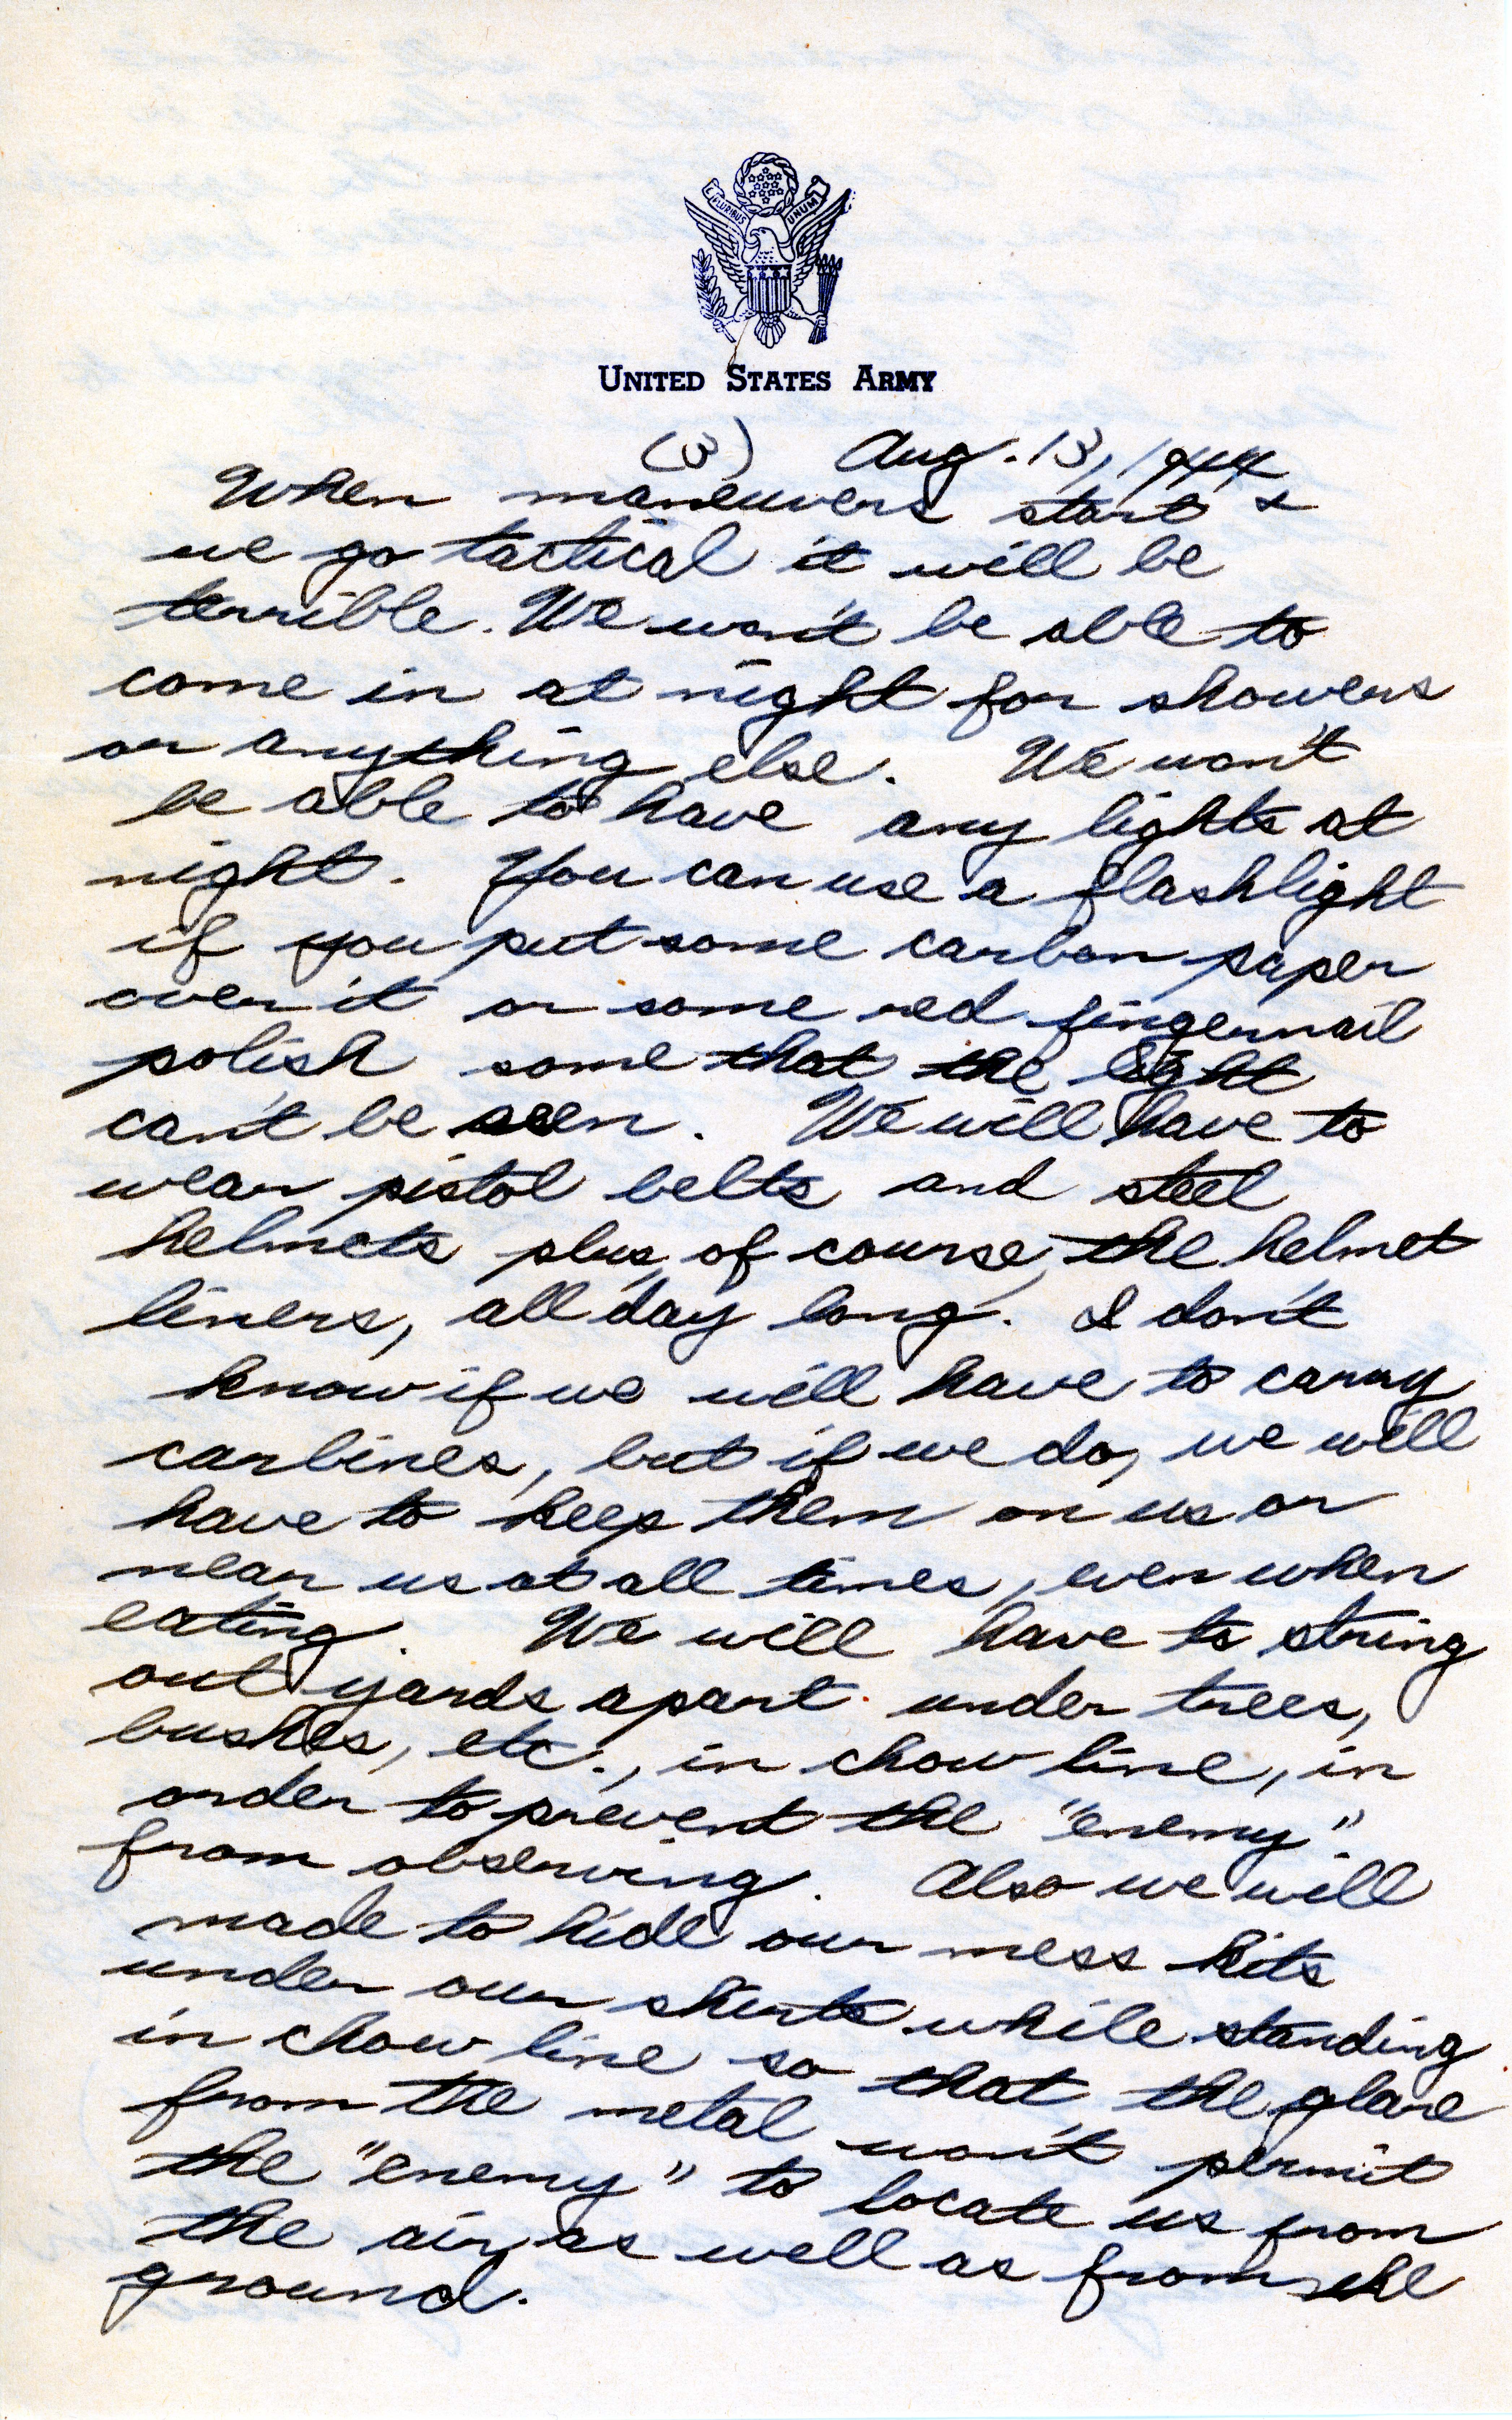 E PLURIBUS UNUM
UNITED STATES ARMY
(3) Aug. 13, 1944
When maneuvers start &
we go tactical it will be
terrible. We won't be able to
come in at night for showers
or anything else. We won't
be able to have any lights at
night. You can use a flashlight
if you put some carbon paper
over it or some red fingernail
polish some that the light
can't be seen. We will have to
wear pistol belts and steel
helmets plus, of course, the helmet
liners, all day long. I don't
know if we will have to carry
carbines, but if we do, we will
have to keep them on us or
near us at all times, even when
eating. We will have to string
out yards apart under trees,
bushes, etc., in chow line, in
order to prevent the "enemy"
from observing. Also we will
made to hide our mess kits
under our shirts while standing
in chow line so that the glare
from the metal won't permit
the "enemy" to locate us from
the air, as well as from the
ground.